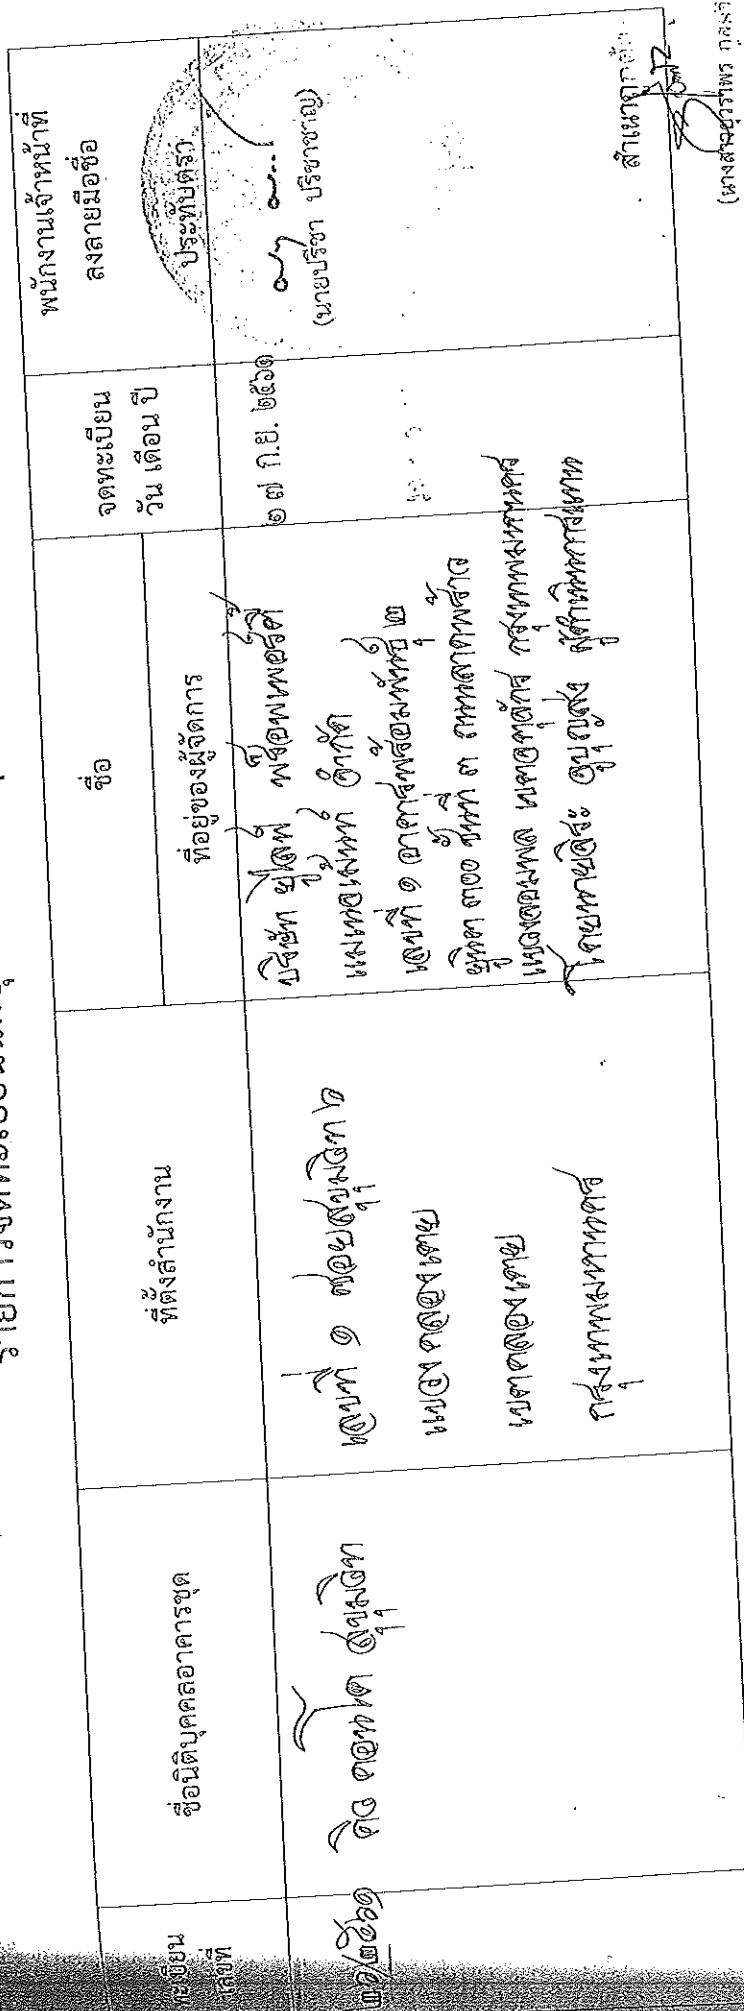 ทะเบียน
เลขที่
ชื่อนิติบุคคลอาคารชุด
ที่ตั้งสำนักงาน
ชื่อ
ที่อยู่ของผู้จัดการ
จดทะเบียน
วัน เดือน ปี
พนักงานเจ้าหน้าที่
ลงลายมือชื่อ
ประทับตรา
/๒๕๖๑
คอนโด สุขุมวิท
เลขที่ ๑ ซอยสุขุมวิท ๖
แขวงคลองเตย
เขตคลองเตย
กรุงเทพมหานคร
บริษัท ยูไลฟ์ พร็อพเพอร์ตี้
แมเนจเม้นท์ จำกัด
เลขที่ ๑ อาคารพร้อมพันธุ์ ๒
ยูนิต ๓๐๐ ชั้นที่ ๓ ถนนลาดพร้าว
แขวงจอมพล เขตจตุจักร กรุงเทพมหานคร
โดยนาย ผู้ดำเนินการแทน
๒๗ ก.ย. ๒๕๖๑
(นายปรีชา ปรีชาชาญ)
สำเนาถูกต้อง